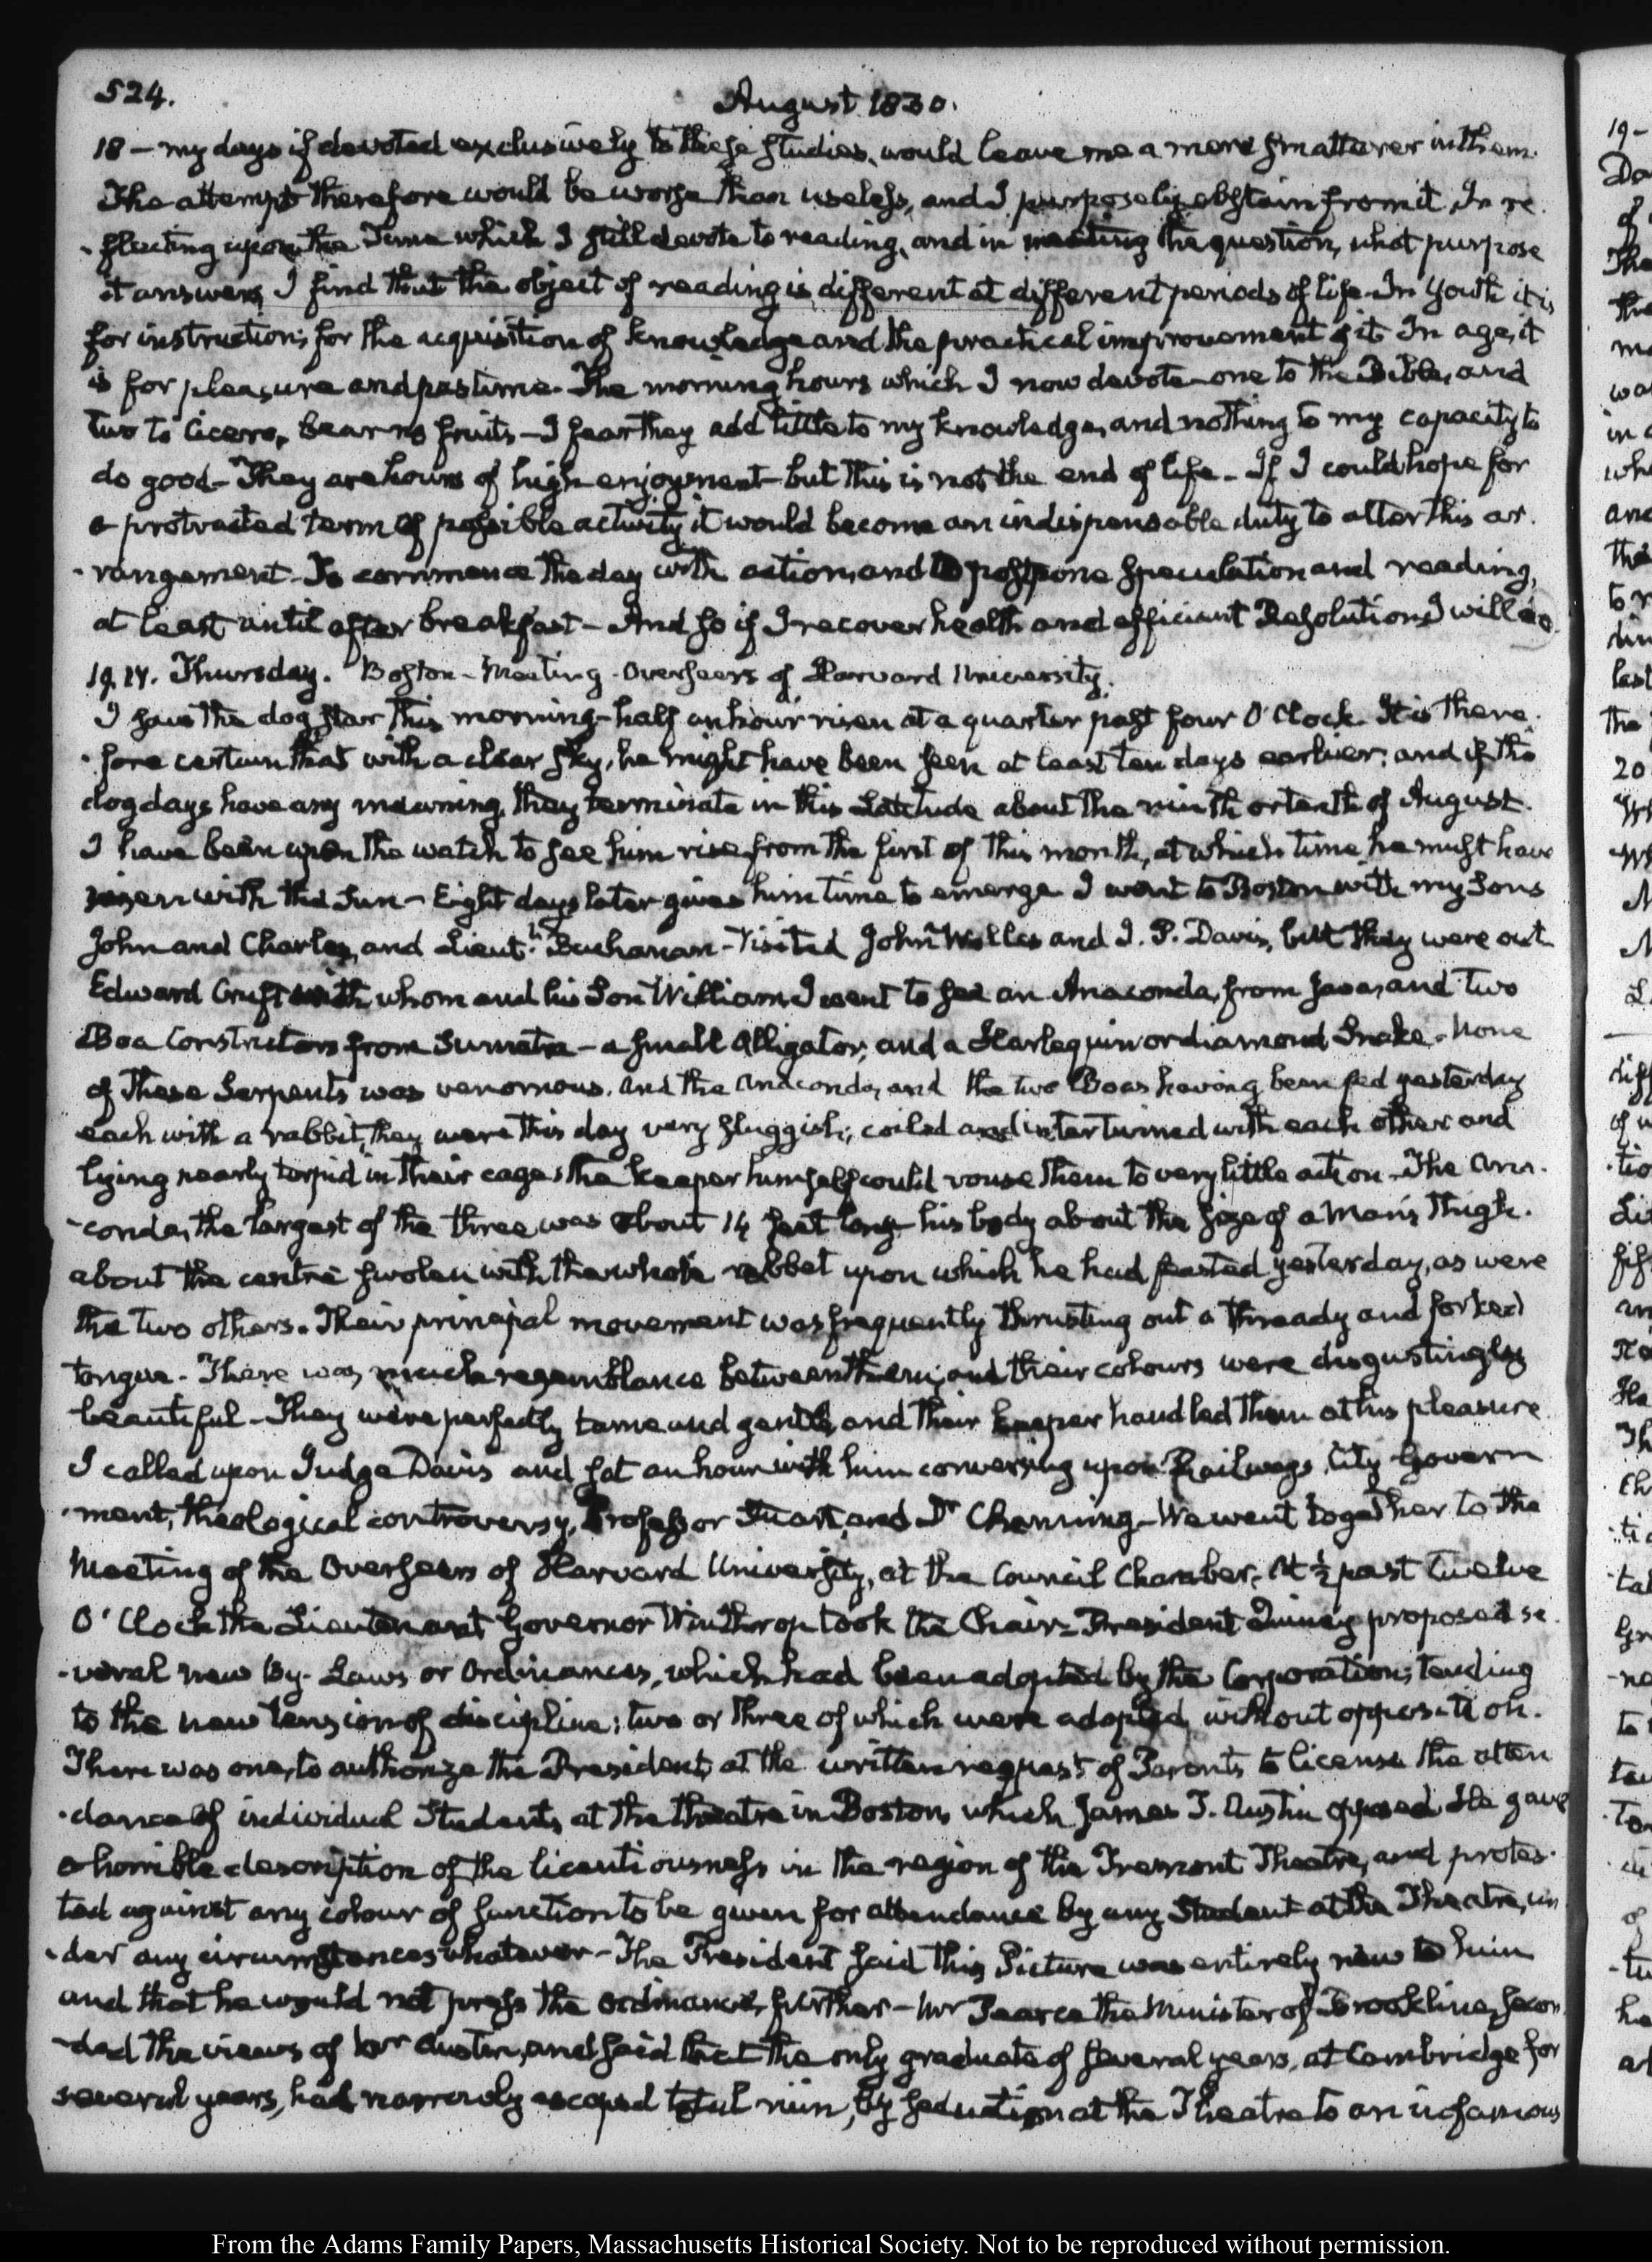 524.
August 1830.
18 — my days if devoted exclusively to these studies, would leave me a mere smatterer in them.
The attempt therefore would be worse than useless, and I purposely abstain from it. In re-
-flecting upon the Time which I still devote to reading, and in meeting the question, what purpose
it answers, I find that the object of reading is different at different periods of life. In Youth it is
for instruction; for the acquisition of knowledge and the practical improvement of it. In age, it
is for pleasure and pastime. The morning hours which I now devote one to the Bible, and
two to Cicero, bear no fruits — I fear they add little to my knowledge, and nothing to my capacity to
do good — They are hours of high enjoyment — but this is not the end of life. If I could hope for
a protracted term of possible activity it would become an indispensable duty to alter this ar-
-rangement. To commence the day with action, and to postpone speculation and reading,
at least until after breakfast — And so if I recover health and efficient Resolution, I will do
19. IV. Thursday. Boston - Meeting - Overseers of Harvard University.
I saw the dog star this morning - half an hour risen at a quarter past four O'Clock. It is there-
-fore certain that with a clear sky, he might have been seen at least ten days earlier; and if the
dog days have any meaning, they terminate in this Latitude about the ninth or tenth of August.
I have been upon the watch to see him rise from the first of this month, at which time he must have
risen with the Sun — Eight days later gives him time to emerge. I went to Boston with my Sons
John and Charles, and Lieutt. Buchanan - Visited John Welles and I. P. Davis, but they were out
Edward Cruft with whom and his Son William, I went to see an Anaconda, from Java, and two
Boa Constrictors from Sumatra — a small Alligator, and a Harlequin or diamond Snake. None
of these Serpents was venomous. And the Anaconda, and the two Boas having been fed yesterday
each with a rabbit, they were this day very sluggish; coiled and intertwined with each other and
lying nearly torpid in their cage, the keeper himself could rouse them to very little action. The Ana-
-conda, the largest of the three was about 14 feet long - his body about the size of a Man's Thigh.
about the centre swolen with the whole rabbet upon which he had feasted yesterday, as were
the two others. Their principal movement was frequently thrusting out a thready and forked
tongue. There was much resemblance between them; and their colours were disgustingly
beautiful. They were perfectly tame and gentle, and their keeper handled them at his pleasure
I called upon Judge Davis and sat an hour with him conversing upon Railways, City Govern
-ment, theological controversy, Professor Stuart, and Dr Channing — We went together to the
Meeting of the Overseers of Harvard University, at the Council Chamber. At ½ past twelve
O'Clock the Lieutenant Governor Winthrop took the Chair. President Quincy proposed se-
-veral new By-Laws or Ordinances, which had been adopted by the Corporation; tending
to the new tension of discipline; two or three of which were adopted without opposition.
There was one, to authorize the President, at the written request of Parents to license the atten
-dance of individual Students, at the theatre in Boston, which James T. Austin opposed. He gave
a horrible description of the licentiousness in the region of the Tremont Theatre, and protes-
ted against any colour of sanction to be given for attendance by any Student at the Theatre, un
-der any circumstances whatever — The President said this Picture was entirely new to him
and that he would not press the ordinance further — Mr Pearce the Minister of Brookline, secon
-ded the views of Mr Austin, and said that the only graduate of several years, at Cambridge for
several years, had narrowly escaped total ruin, by seduction at the Theatre to an infamous
From the Adams Family Papers, Massachusetts Historical Society. Not to be reproduced without permission.